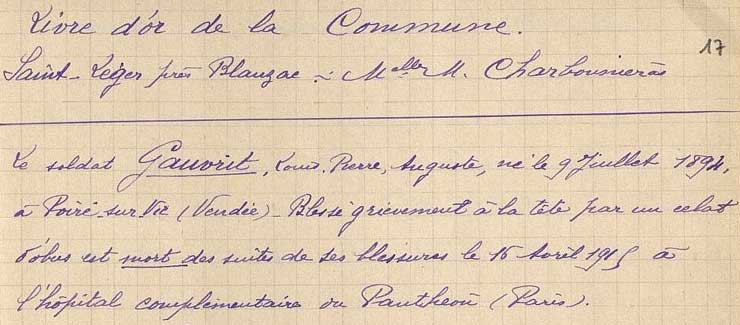 Livre d'or de la Commune.
17
Saint-Léger près Blanzac ~ Melle M. Charbonnieras
Le soldat Gauvrit, Louis, Pierre, Auguste, né le 9 Juillet 1894,
à Poiré-sur-Vie (Vendée) - Blessé grièvement à la tête par un eclat
d'obus est mort des suites de ses blessures le 16 Avril 1915 à
l'hôpital complémentaire du Panthéon (Paris).